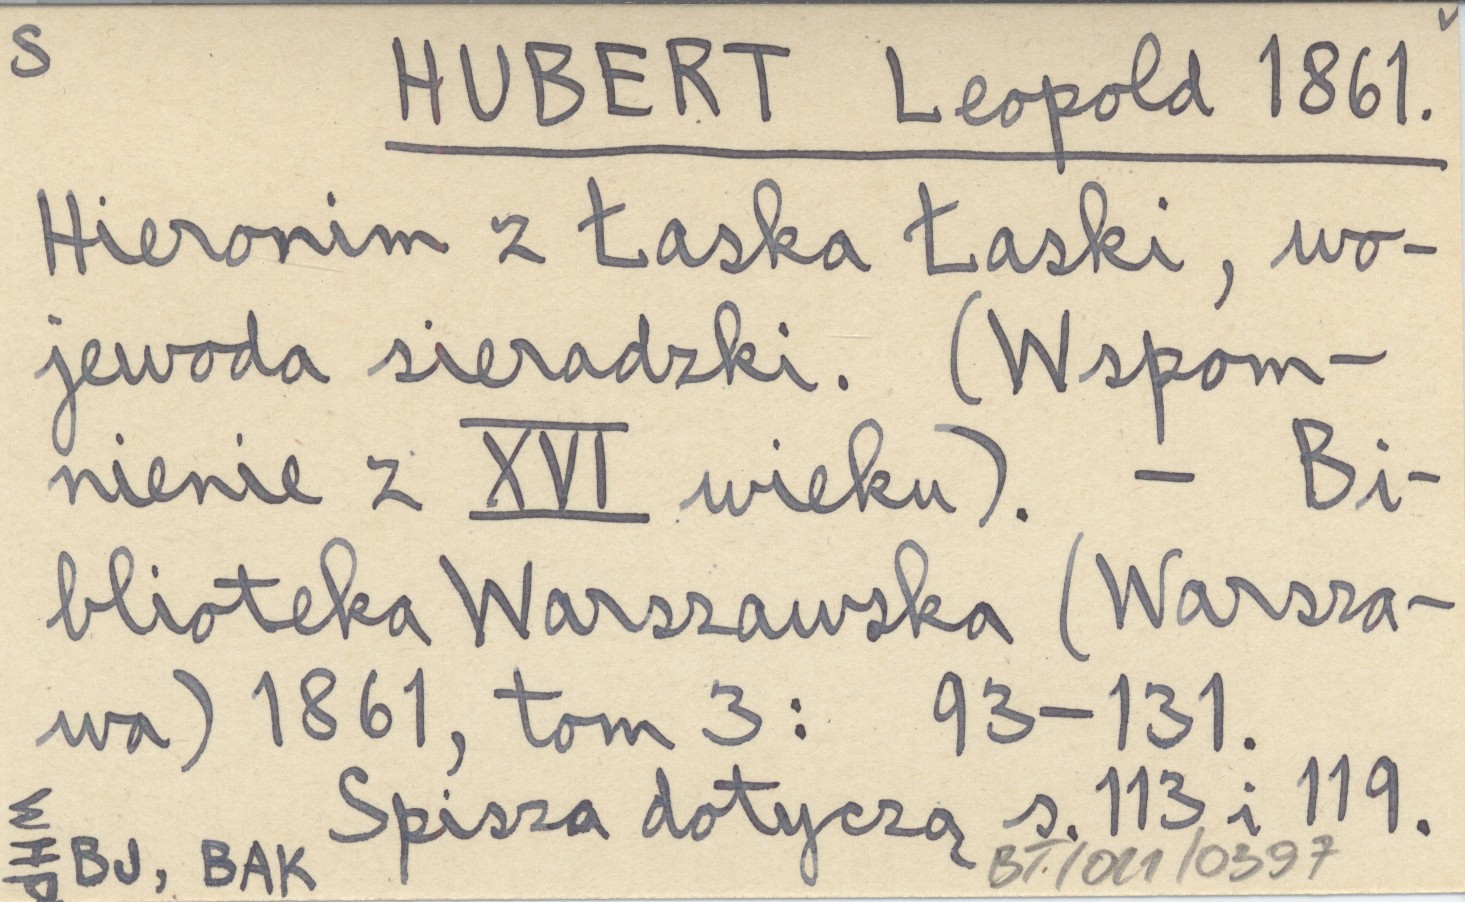 S
HUBERT Leopold 1861.
Hieronim z Łaska Łaski, wo-
jewoda sieradzki. (Wspom-
nienie z XVI wieku). - Bi-
blioteka Warszawska (Warsza-
wa) 1861, tom 3: 93-131.
Spisza dotyczą s. 113 i 119.
BJ, BAK